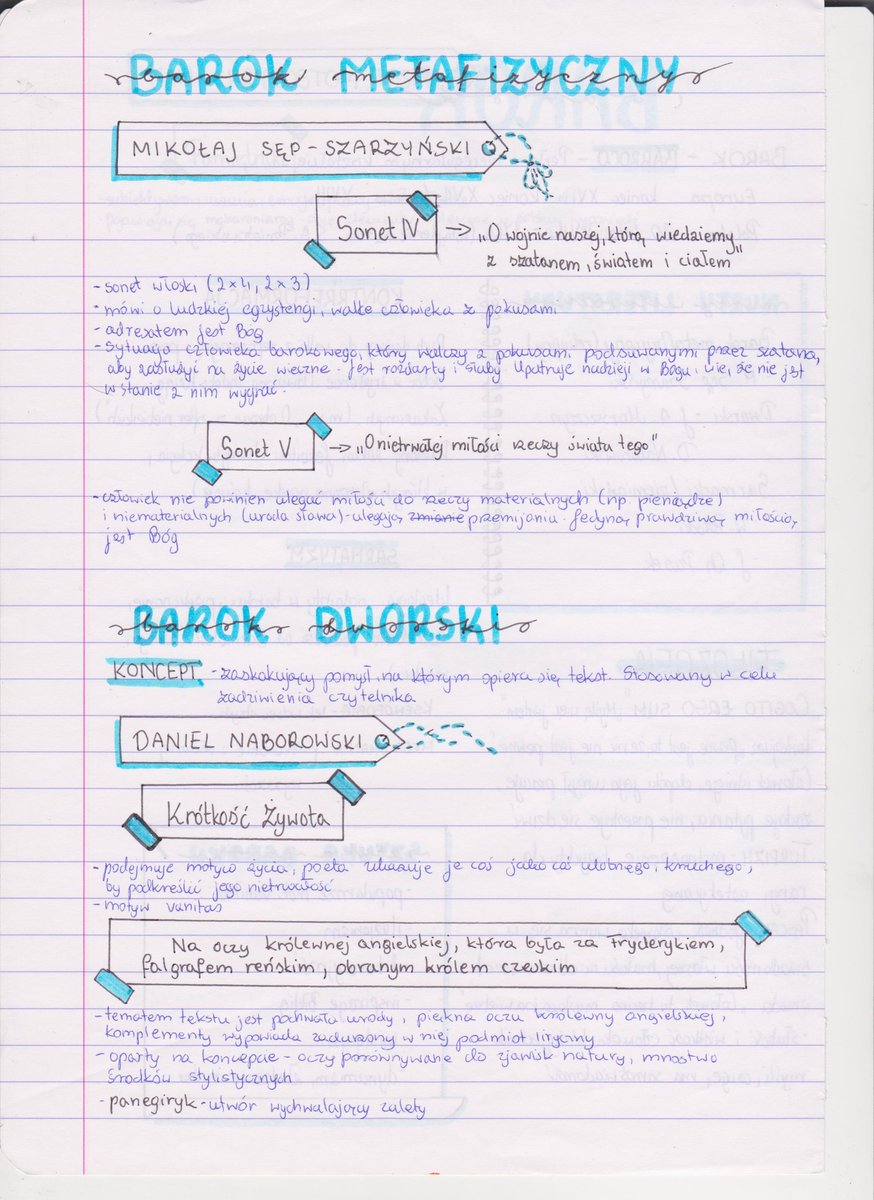 BAROK METAFIZYCZNY
MIKOŁAJ SĘP-SZARZYŃSKI
Sonet IV → „O wojnie naszej, którą wiedziemy
z szatanem, światem i ciałem"
- sonet włoski (2×4, 2×3)
- mówi o ludzkiej egzystencji, walce człowieka z pokusami
- adresatem jest Bóg
- sytuacja człowieka barokowego, który walczy z pokusami podsuwanymi przez szatana,
aby zasłużyć na życie wieczne. Jest rozdarty i słaby. Upatruje nadzieji w Bogu, wie, że nie jest
w stanie z nim wygrać.
Sonet V → „O nietrwałej miłości rzeczy świata tego"
- człowiek nie powinien ulegać miłości do rzeczy materialnych (np pieniądze)
i niematerialnych (uroda sława) - ulegają zmianie przemijaniu. Jedyną prawdziwą miłością
jest Bóg
BAROK DWORSKI
KONCEPT - zaskakujący pomysł, na którym opiera się tekst. Stosowany w celu
zadziwienia czytelnika
DANIEL NABOROWSKI
Krótkość Żywota
- podejmuje motyw życia, poeta ukazuje je coś jako coś ulotnego, kruchego,
by podkreślić jego nietrwałość
- motyw vanitas
Na oczy królewnej angielskiej, która była za Fryderykiem,
falgrafem reńskim, obranym królem czeskim
- tematem tekstu jest pochwała urody, piękna oczu królewny angielskiej,
komplementy wypowiada zadurzony w niej podmiot liryczny
- oparty na koncepcie - oczy porównywane do zjawisk natury, mnóstwo
środków stylistycznych
- panegiryk - utwór wychwalający zalety